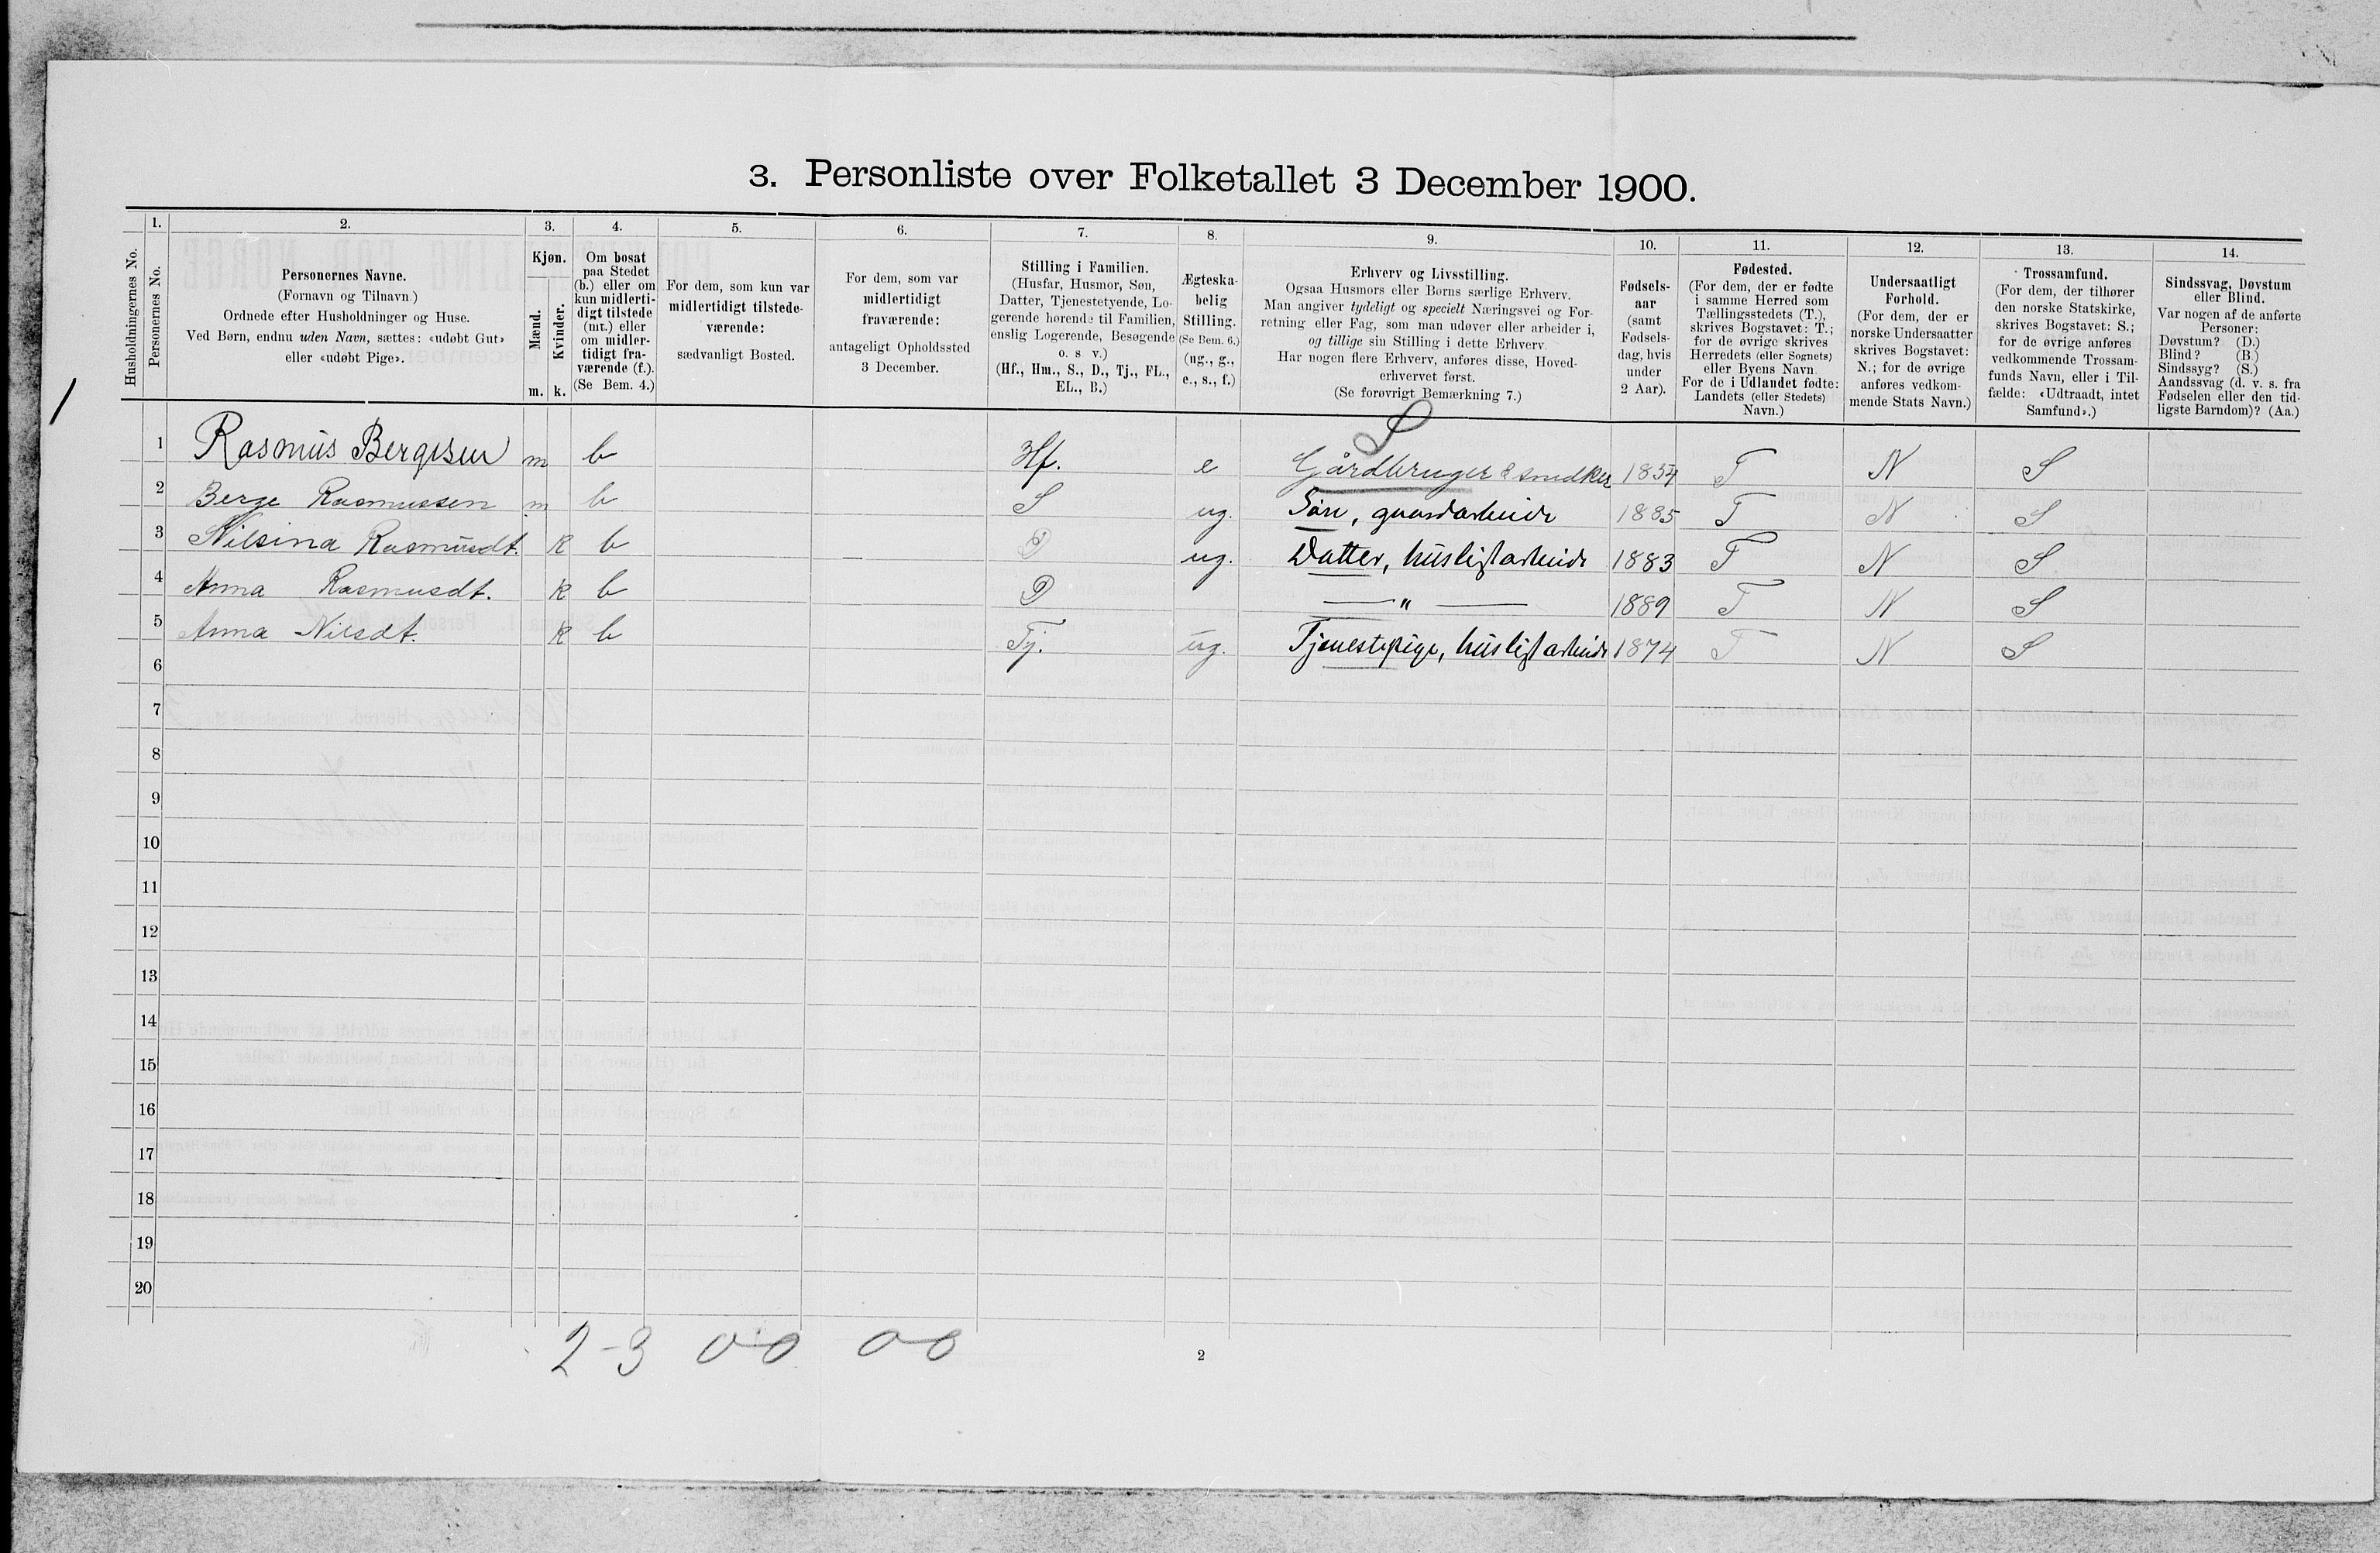 3. Personliste over Folketallet 3 December 1900.
1. 2. 3. 4. 5. 6. 7. 8. 9. 10. 11. 12. 13. 14.
Husholdningernes No.
Personernes No.
Personernes Navne.
(Fornavn og Tilnavn.)
Ordnede efter Husholdninger og Huse.
Ved Børn, endnu uden Navn, sættes: «udøbt Gut»
eller «udøbt Pige».
Kjøn.
Mænd.
Kvinder.
m. k.
Om bosat
paa Stedet
(b.) eller om
kun midlerti-
digt tilstede
(mt.) eller
om midler-
tidigt fra-
værende (f.).
(Se Bem. 4.)
For dem, som kun var
midlertidigt tilstede-
værende:
sædvanligt Bosted.
For dem, som var
midlertidigt
fraværende:
antageligt Opholdssted
3 December.
Stilling i Familien.
(Husfar, Husmor, Søn,
Datter, Tjenestetyende, Lo-
gerende hørende til Familien,
enslig Logerende, Besøgende
o. s. v.)
(Hf., Hm., S., D., Tj., FL.,
EL., B.)
Ægteska-
belig
Stilling.
(Se Bem. 6.)
(ug., g.,
e., s., f.)
Erhverv og Livsstilling.
Ogsaa Husmors eller Børns særlige Erhverv.
Man angiver tydeligt og specielt Næringsvei og For-
retning eller Fag, som man udøver eller arbeider i,
og tillige sin Stilling i dette Erhverv.
Har nogen flere Erhverv, anføres disse, Hoved-
erhvervet først.
(Se forøvrigt Bemærkning 7.)
Fødsels-
aar
(samt
Fødsels-
dag, hvis
under
2 Aar).
Fødested.
(For dem, der er fødte
i samme Herred som
Tællingsstedets (T.),
skrives Bogstavet: T.;
for de øvrige skrives
Herredets (eller Sognets)
eller Byens Navn.
For de i Udlandet fødte:
Landets (eller Stedets)
Navn.)
Undersaatligt
Forhold.
(For dem, der er
norske Undersaatter
skrives Bogstavet:
N.; for de øvrige
anføres vedkom-
mende Stats Navn.)
Trossamfund.
(For dem, der tilhører
den norske Statskirke,
skrives Bogstavet: S.;
for de øvrige anføres
vedkommende Trossam-
funds Navn, eller i Til-
fælde: «Udtraadt, intet
Samfund».)
Sindssvag, Døvstum
eller Blind.
Var nogen af de anførte
Personer:
Døvstum? (D.)
Blind? (B.)
Sindssyg? (S.)
Aandssvag (d. v. s. fra
Fødselen eller den tid-
ligste Barndom)? (Aa.)
S
1 Rasmus Bergesen m b Hf. e Gårdbruger & snedker 1854 T N S
2 Berge Rasmussen m b S ug. Søn, gaardarbeide 1885 T N S
3 Nilsina Rasmusdt. k b D ug. Datter, husligt arbeide 1883 T N S
4 Anna Rasmusdt. k b D — " — 1889 T N S
5 Anna Nilsdt. k b Tj. ug. Tjenestepige, husligt arbeide 1874 T N S
6
7
8
9
10
11
12
13
14
15
16
17
18
19
20
2-3 0-0 0-0
2